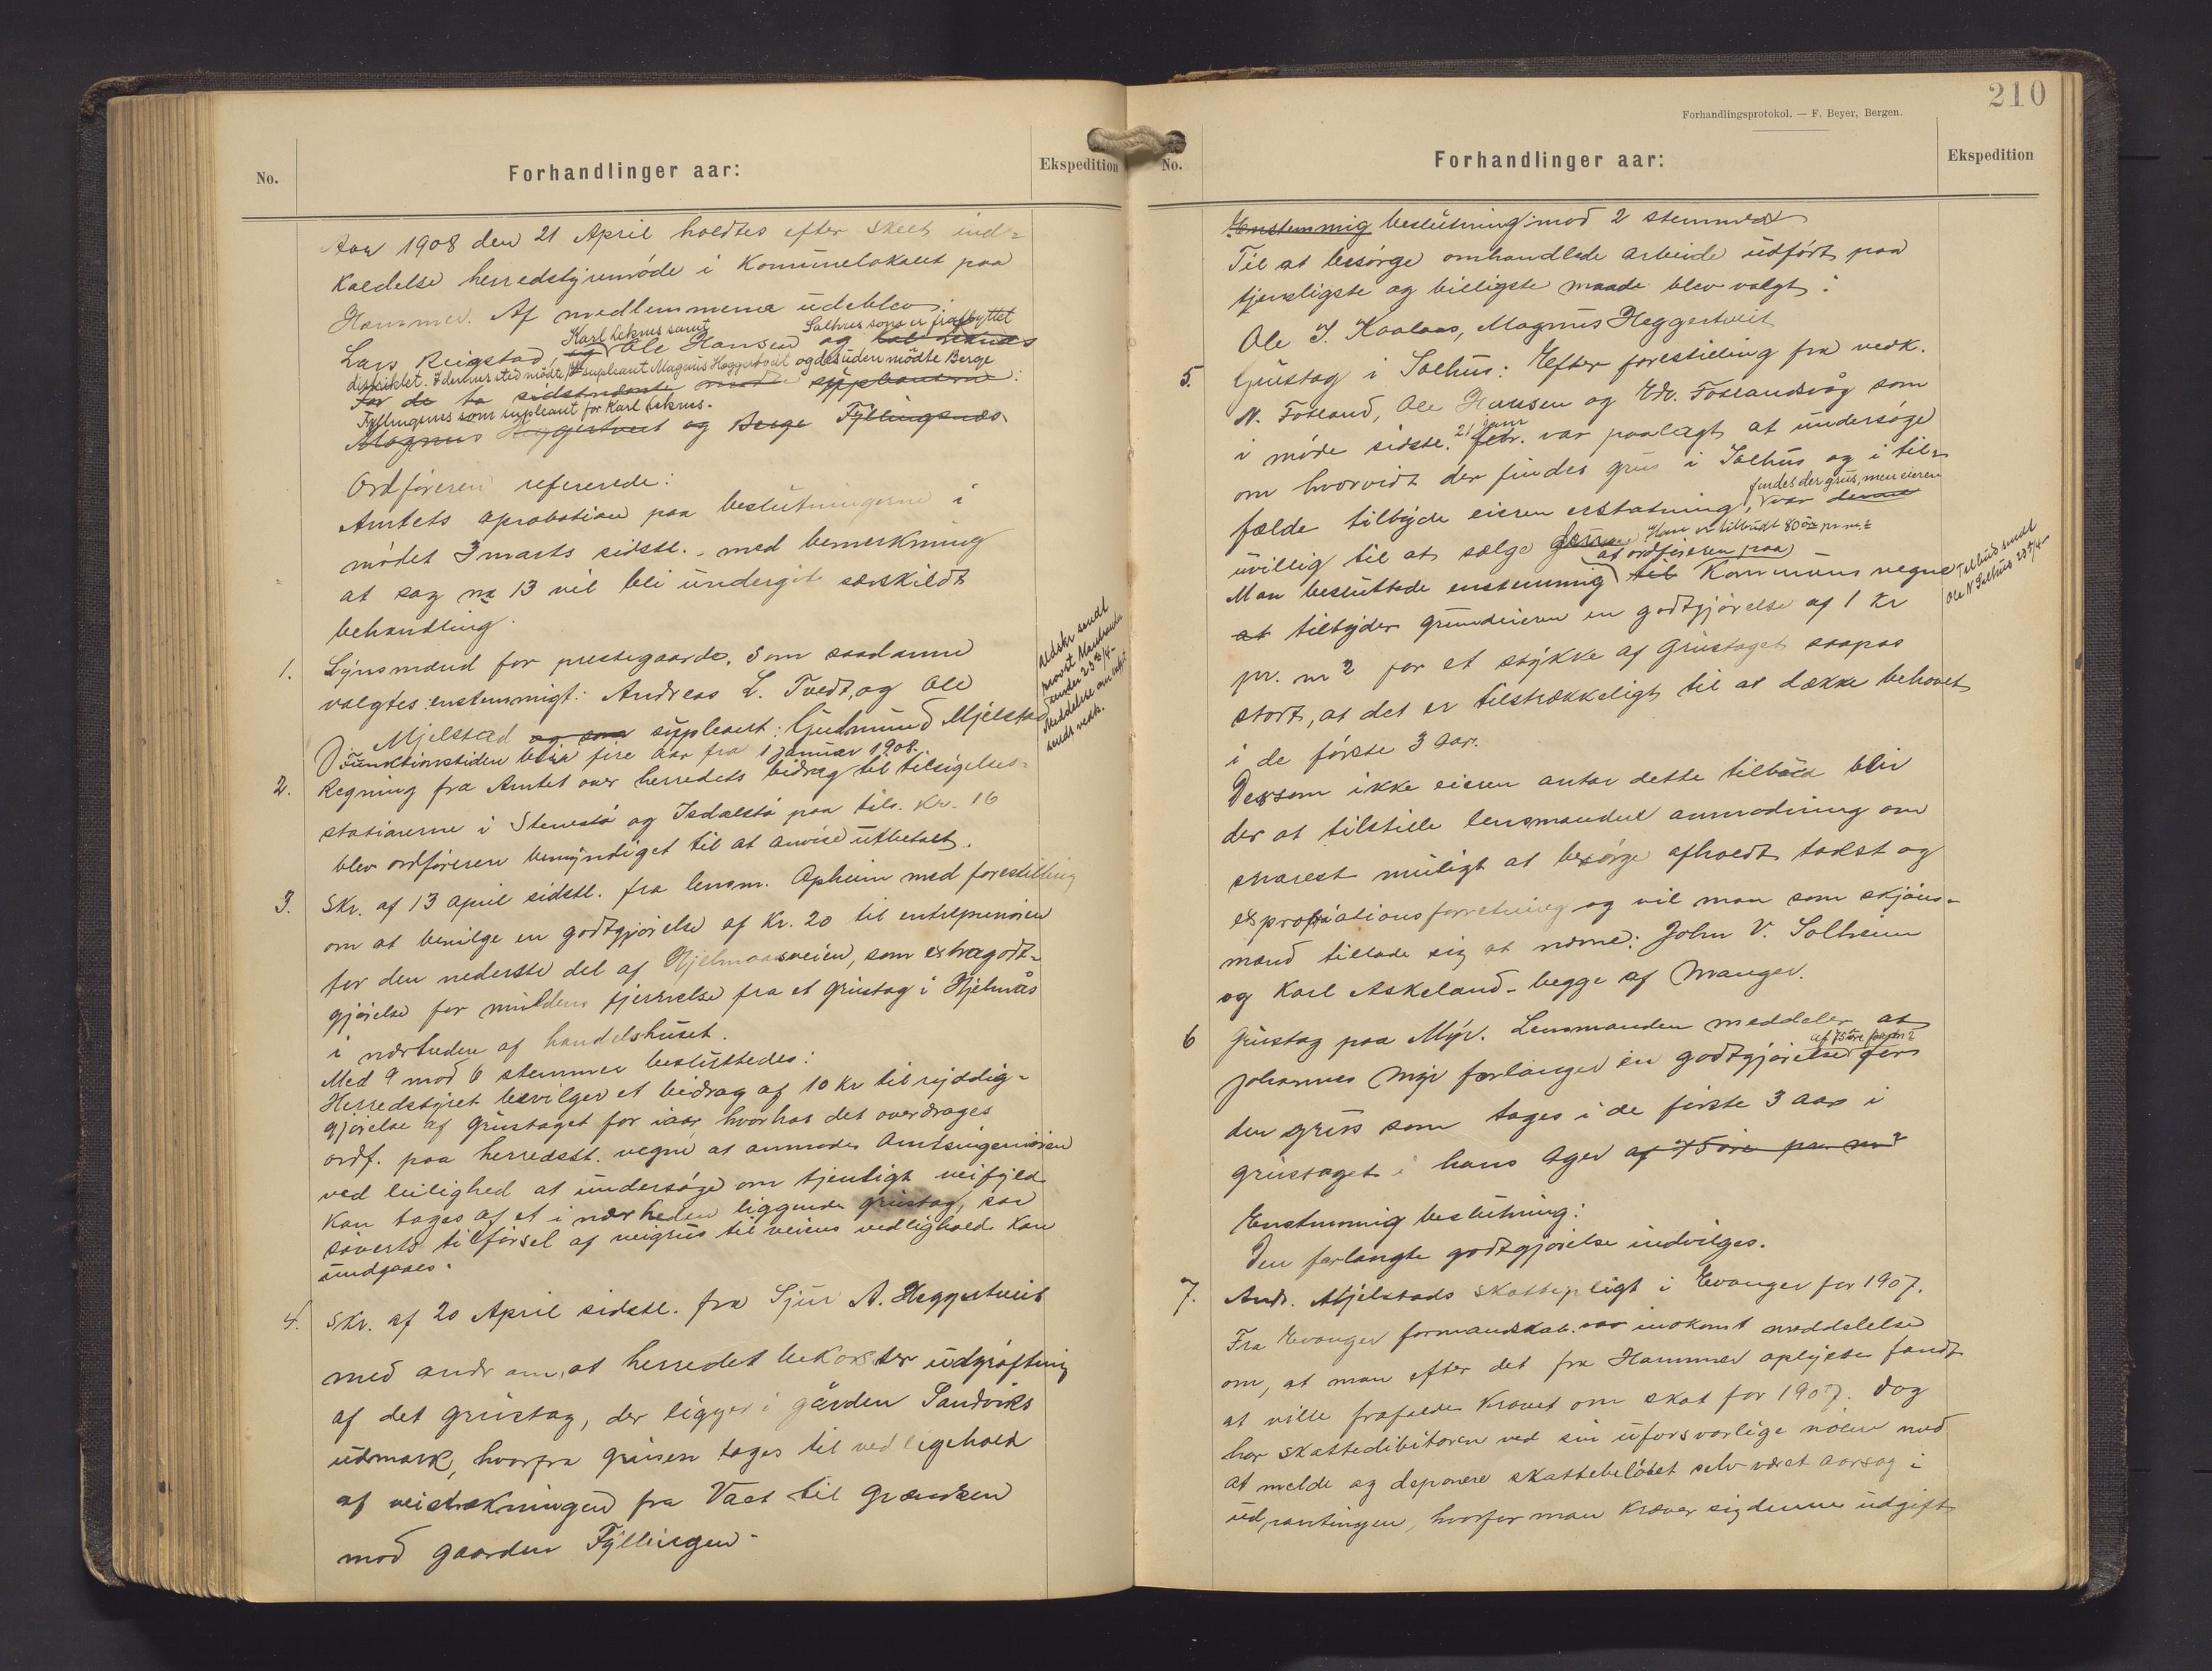 No.
Forhandlinger aar:
Ekspedition
Aar 1908 den 21 April holdtes efter skeet ind=
kaldelse herredstyremøde i Kommunelokalet paa
Hammer. Af medlemmerne udeblev:
Karl Leknes samt
Salhus som er fraflyttet
Lars Reigstad, og Ole Hansen og Karl Leknes
distriktet. I denhus sted mødte supleant Magnus Heggertveit og desuden mødte Berge
For de to sidstnævnte mødte suppleanterne:
Fyllingsnes som supleant for Karl Leknes.
Magnus Heggertveit og Berge Fyllingsnæs.
Ordføreren refererede:
Amtets aprobation paa beslutningerne i
mødet 3 marts sidstl. - med bemerkning
at sag no 13 vil bli undergit særskildt
behandling.
1. Synsmænd for prestegaarde. Som saadanne
valgtes enstemmigt: Andreas L. Tvedt, og Ole
Mjelstad og som supleant: Gudmund Mjelstad
Funktionstiden blir fire aar fra 1 januar 1908.
2. Regning fra Amtet over herredets bidrag til tilsigelses-
stationerne i Stenestø og Isdalstø paa tils. Kr. 16
blev ordføreren bemyndiget til at anvise utbetalt.
3. Skr. af 13 april sidstl. fra lensm. Opheim med forestilling
om at bevilge en godtgjørelse af Kr. 20 til entreprenøren
for den nederste del af Hjelmaasveien, som extragodt-
gjørelse for muldens fjernelse fra et grustag i Hjelmås
i nærheden af handelshuset.
Med 9 mod 6 stemmer besluttedes:
Herredstyret bevilger et bidrag af 10 kr til ryddig-
gjørelse af grustaget for iaar hvorhos det overdrages
ordf. paa herredsst. vegne at anmode Amtsingeniøren
ved leilighed at undersøge om tjenligt veifyld
kan tages af et i nærheden liggende grustag, saa
søverts tilførsel af veigrus til veiens vedlighold kan
undgaaes.
4. Skr. af 20 April sidstl. fra Sjur A. Heggertveit
med andr om, at herredet bekoster udgrøftning
af det grustag, der ligger i gården Sandviks
udmark, hvorfra grusen tages til vedligehold
af veistrækningen fra Vaet til Grændsen
mod gaarden Fyllingen -
Udskr. sendt
provst
under 23/4-
Meddelelse om valget
sendt vedk.
210
Forhandlingsprotokol. — F. Beyer, Bergen.
No.
Forhandlinger aar:
Ekspedition
Enstemmig beslutning: mod 2 stemmer
Til at besørge omhandlede arbeide udført paa
tjenligste og billigste maade blev valgt:
Ole I. Kaalaas, Magnus Heggertveit
5. Grustag i Salhus: Efter forestilling fra vedk.
N. Fosland, Ole Hansen og Edv. Foslandsvåg som
21 janr
i møde sidstl. febr. var paalagt at undersøge
om hvorvidt der findes grus i Salhus og i til-
findes der grus, men eieren
fælde tilbyde eieren erstatning, var denne
uvillig til at sælge Han er tilbudt 80 øre pr m2
at ordføreren paa
Man besluttede enstemmig til Kommunens vegne
at tilbyder grundeieren en godtgjørelse af 1 Kr
pr. m2 for et stykke af Grustaget saapas
stort, at det er tilstrækkeligt til at dække behovet
i de første 3 aar.
Dersom ikke eieren antar dette tilbud blir
der at tilstille lensmanden anmodning om
snarest muligt at besørge afholdt takst og
expropriationsforretning og vil man som skjøns-
mænd tillade sig at nævne: John V. Solheim
og Karl Askeland - begge af Manger.
6 Grustag paa Myr. Lensmanden meddeler at
af 75 øre pr m2
Johannes Myr forlanger en godtgjørelse for
den grus som tages i de første 3 aar i
grustaget i hans Ager af 75 øre pr. m2
Enstemmig beslutning:
Den forlangte godtgjørelse indvilges.
7. Andr. Mjelstads skattepligt i Evanger for 1907.
Fra Evanger formandskab. var indkomt meddelelse
om, at man efter det fra Hammer oplyste fandt
at ville frafalde kravet om skat for 1907. Dog
har skattedebitoren ved sin uforsvarlige nølen med
at melde og deponere skattebeløbet selv været aarsag i
udpantingen, hvorfor man kræver sig denne udgift
Tilbud sendt
Ole N Salhus 23/4-